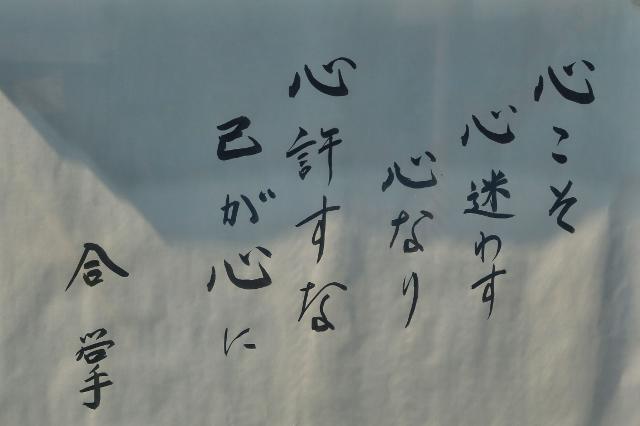 心こそ
心迷わす
心なり
心許すな
己が心に
合掌